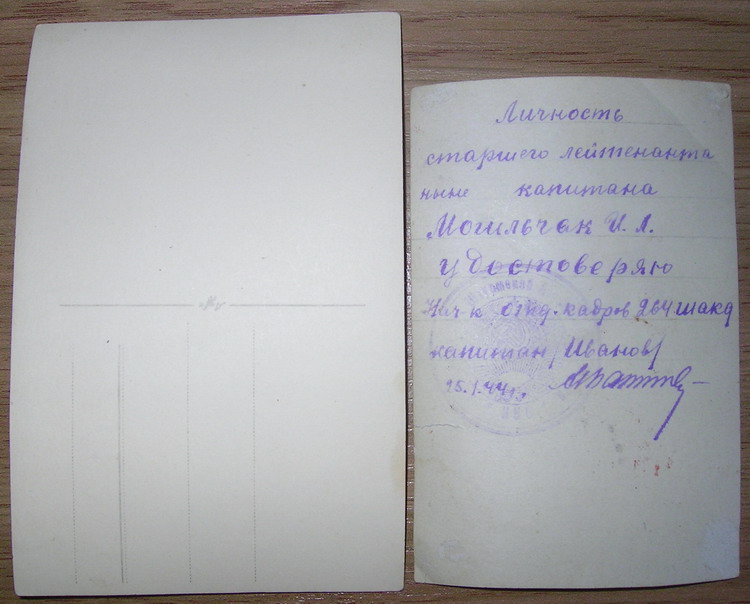 Личность
старшего лейтенанта
ныне капитана
Могильчак И. Л.
удостоверяю
Нач-к отд. кадров 264 шакд
капитан /Иванов/
25.1.44г.